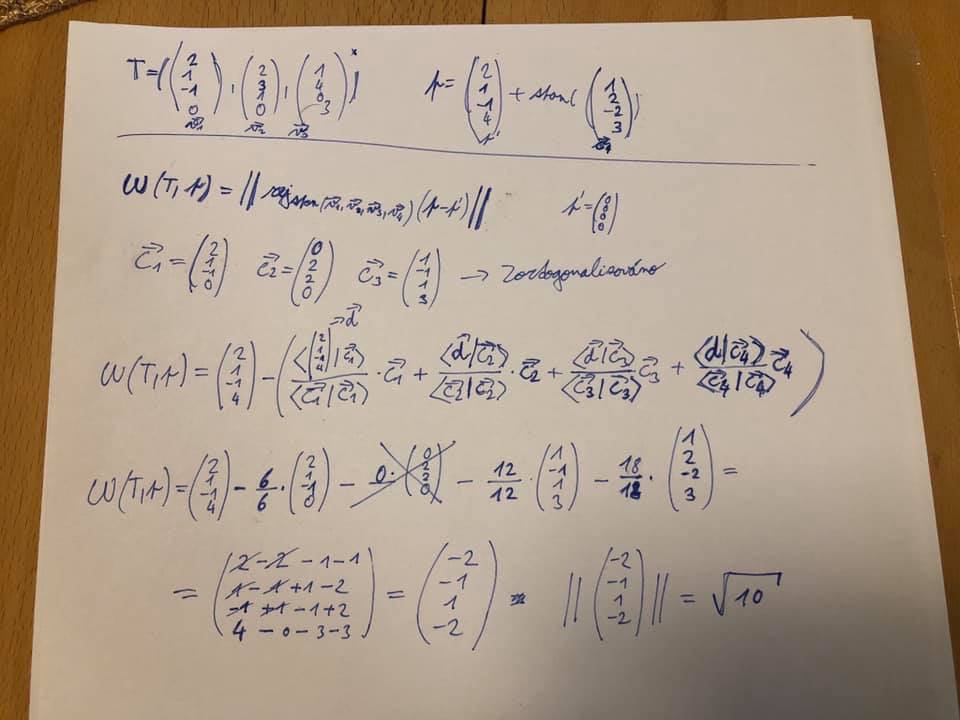 T = ⟨(2 1 -1 0), (2 3 1 0), (1 4 0 3)⟩ p = (2 1 -1 4) + span((1 2 -2 3))
v⃗1 v⃗2 v⃗3 p' c⃗4
ω(T, p) = || rej span(v⃗1, v⃗2, v⃗3, v⃗4) (p - p') || p' = (0 0 0 0)
c⃗1 = (2 1 -1 0) c⃗2 = (0 2 2 0) c⃗3 = (1 -1 1 3) → zortogonalisováno
ω(T, p) = (2 1 -1 4) - (⟨(2 1 -1 4) = d⃗ | c⃗1⟩/⟨c⃗1 | c⃗1⟩ · c⃗1 + ⟨d⃗ | c⃗2⟩/⟨c⃗2 | c⃗2⟩ · c⃗2 + ⟨d⃗ | c⃗3⟩/⟨c⃗3 | c⃗3⟩ c⃗3 + ⟨d | c⃗4⟩/⟨c⃗4 | c⃗4⟩ c⃗4)
ω(T, p) = (2 1 -1 4) - 6/6 · (2 1 -1 0) - 0 · (0 2 2 0) - 12/12 · (1 -1 1 3) - 18/18 · (1 2 -2 3) =
= (2 - 2 - 1 - 1
1 - 1 + 1 - 2
-1 + 1 - 1 + 2
4 - 0 - 3 - 3) = (-2 -1 1 -2) = || (-2 -1 1 -2) || = √10